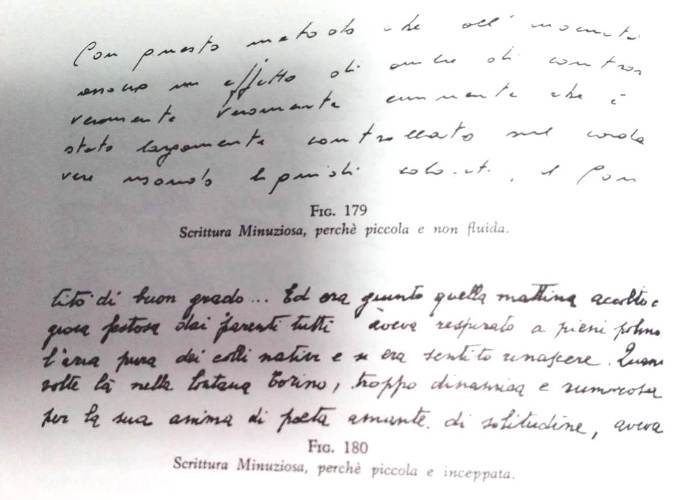 Con questo metodo che all'
un effetto di anche di
veramente veramente che è
stato largamente controllato sul
vere usando liquidi colo
FIG. 179
Scrittura Minuziosa, perchè piccola e non fluida.
tito di buon grado... Ed era giunto quella mattina accolto e
giosa festosa dai parenti tutti aveva respirato a pieni polmo
l'aria pura dei colli nativi e si era sentito rinascere. Quan
volte là nella lontana Torino, troppo dinamica e rumorosa
per la sua anima di poeta amante di solitudine, aveva
FIG. 180
Scrittura Minuziosa, perchè piccola e inceppata.